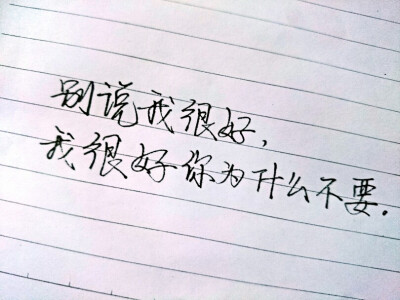 别说我很好,
我很好你为什么不要.